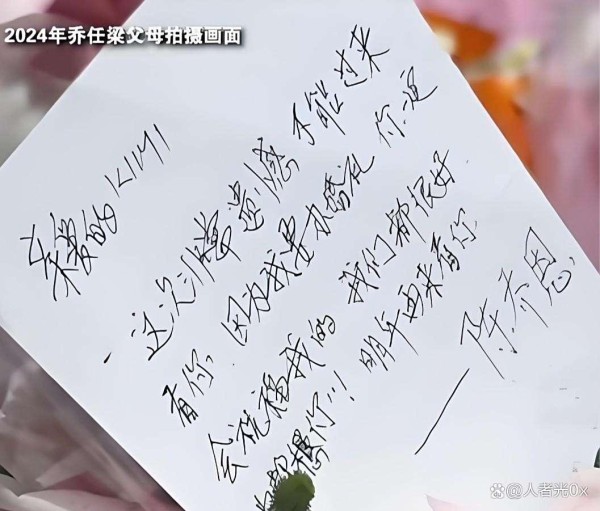 2024年乔任梁父母拍摄画面
亲爱的KIMI
这次很遗憾 不能过来
看你, 因为我要办婚礼 你一定
会祝福我的 我们都很好
想你!!! 明年再来看你
—陈乔恩
@人者光0x